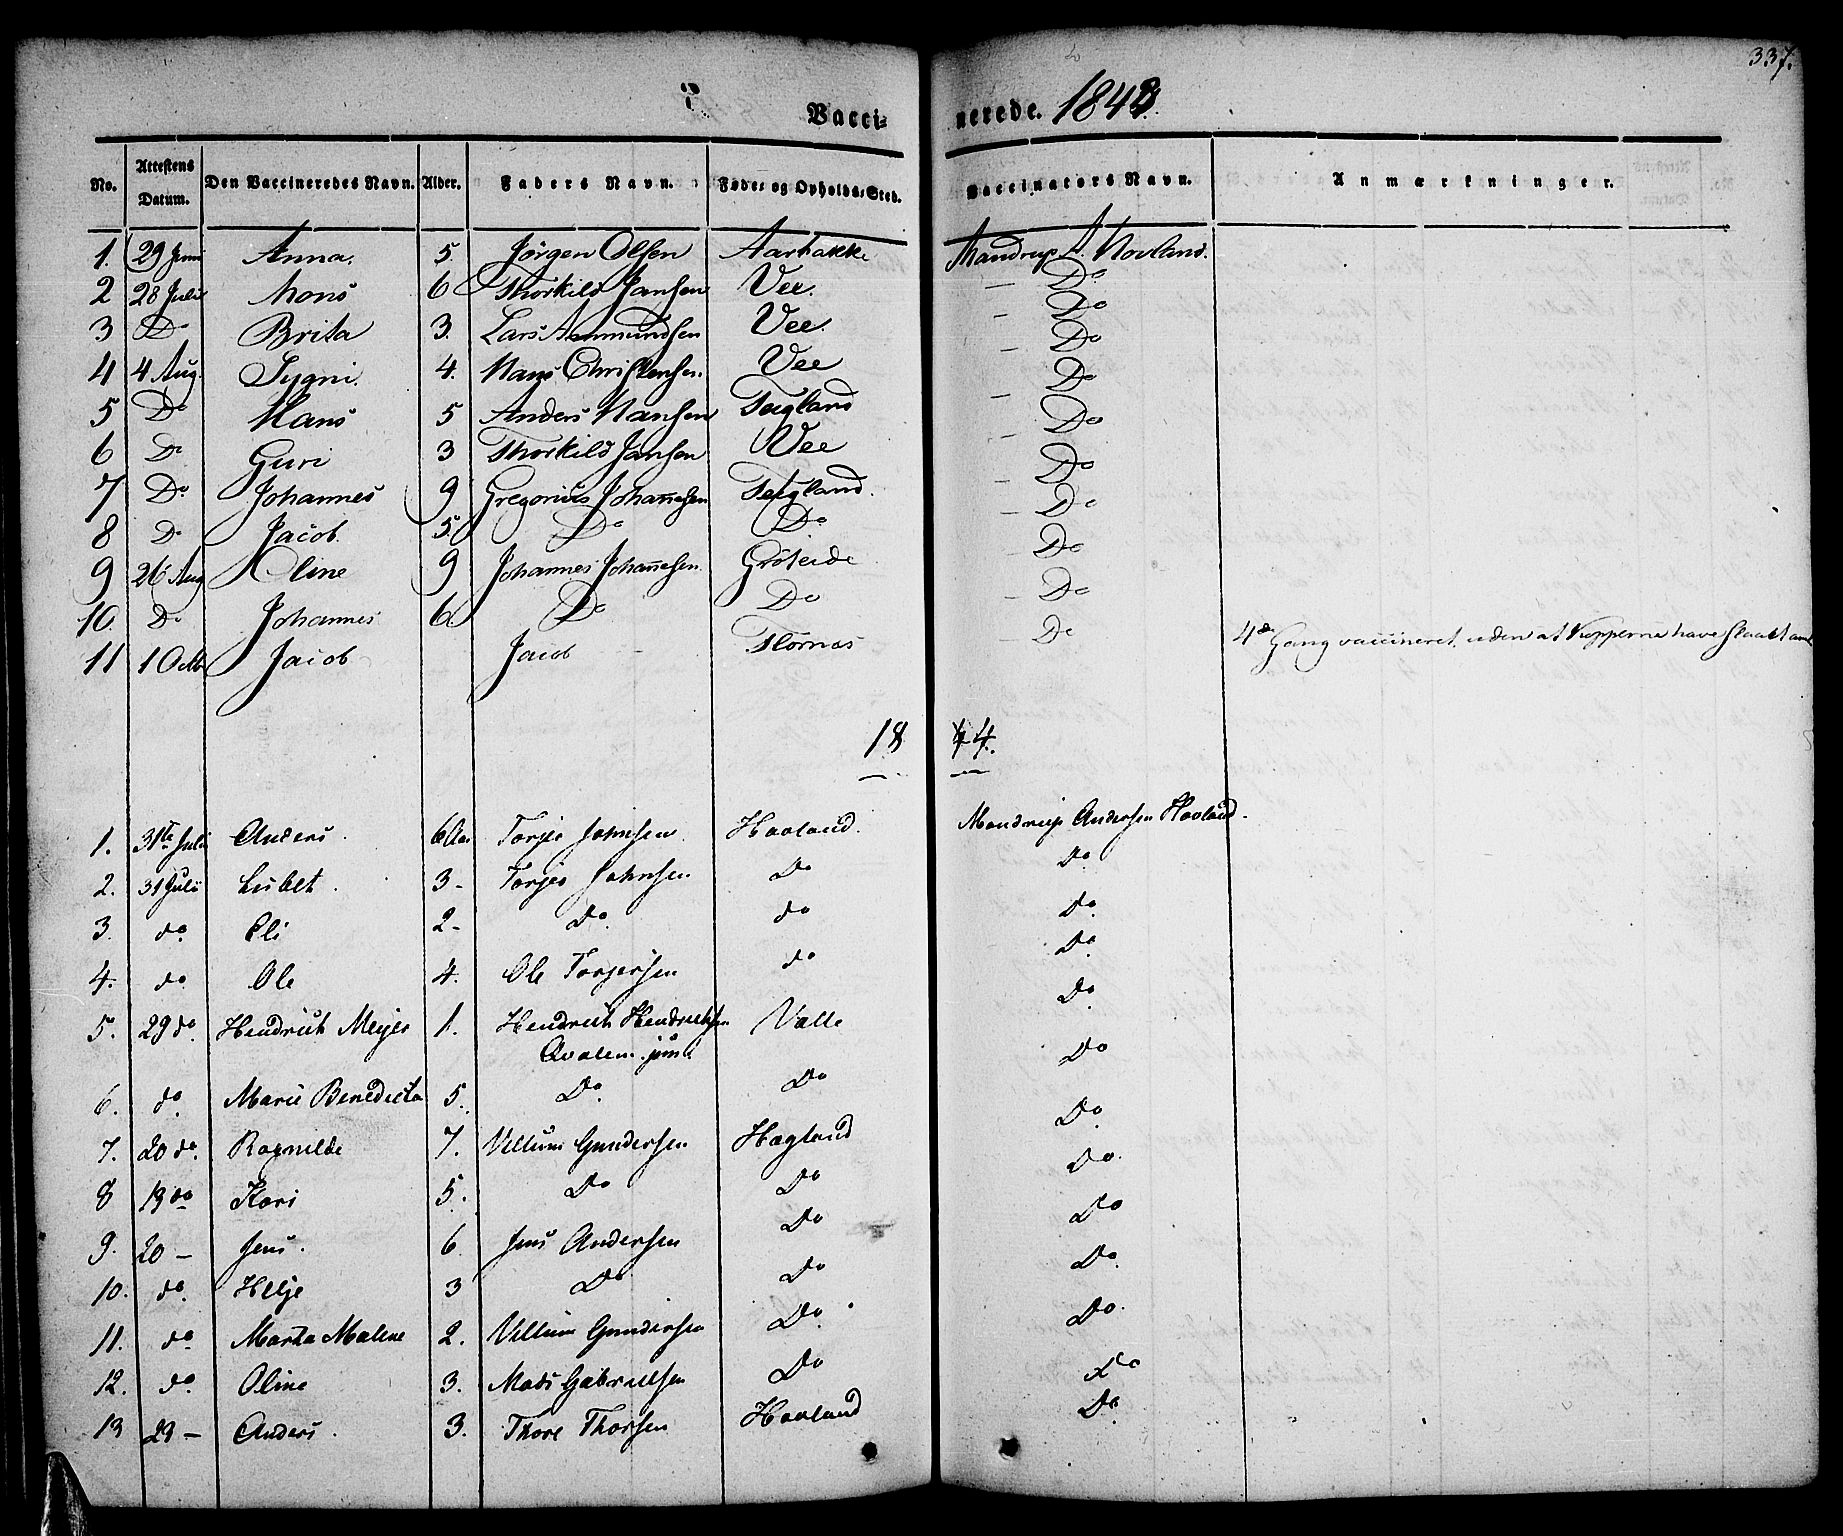 337.
Vaccinerede. 1843.
No. Attestens Datum. Den Vaccineredes Navn. Alder. Faders Navn. Føde- og Opholds-Sted. Vaccinators Navn. Anmærkninger.
1. 29 Juni Anna. 5. Jörgen Olsen Aarbakke Mandrup A. Hovland.
2 28 Juli Mons 6 Thorkild Jansen Vee. Do
3 Do Brita 3. Lars Ammundsen Vee. Do
4 4 Aug. Sygni. 4. Hans Christensen. Vee Do
5 Do Hans 5 Anders Hansen Teigland Do
6 Do Guri 3 Thorkild Jansen Vee Do
7 Do Johannes 9 Gregorius Johannesen Teigland. Do
8 Do Jacob. 5. Do Do Do
9 26 Aug Oline 9 Johannes Johannesen Gröteide Do
10. Do Johannes 6. Do Do Do
11 1 Octb Jacob Jacob Stornæs Do 4de Gang vaccineret, uden at Kopperne have slaaet an
1844.
1. 31te Juli Anders. 6 Aar Torjes Johnsen. Hovland. Mandrup Andersen Hovland.
2. 31 Juli Lisbet. 3 - Torjes Johnsen Do Do
3. do. Eli 2 - Do. do Do.
4. do. Ole 4. Ole Torjersen do Do.
5. 29 do. Hendrich Meyer 1. Hendrich Hendrichsen Valle Do.
Qvalen jun
6. do. Marie Benedicta 5. Do. Do Do
7. 20 do. Ragnilde 7. Villum Gundersen Hagland Do.
8 13 do Kari 5. Do Do Do.
9. 20 - Jens. 6. Jens Andersen Do Do
10. do. Helje 3 Do Do Do.
11. do. Marta Malene 2. Villum Gundersen Do. Do.
12. do. Oline 3. Mads Gabrielsen Do Do
13 29 - Anders. 3. Thore Thorsen Hovland Do.